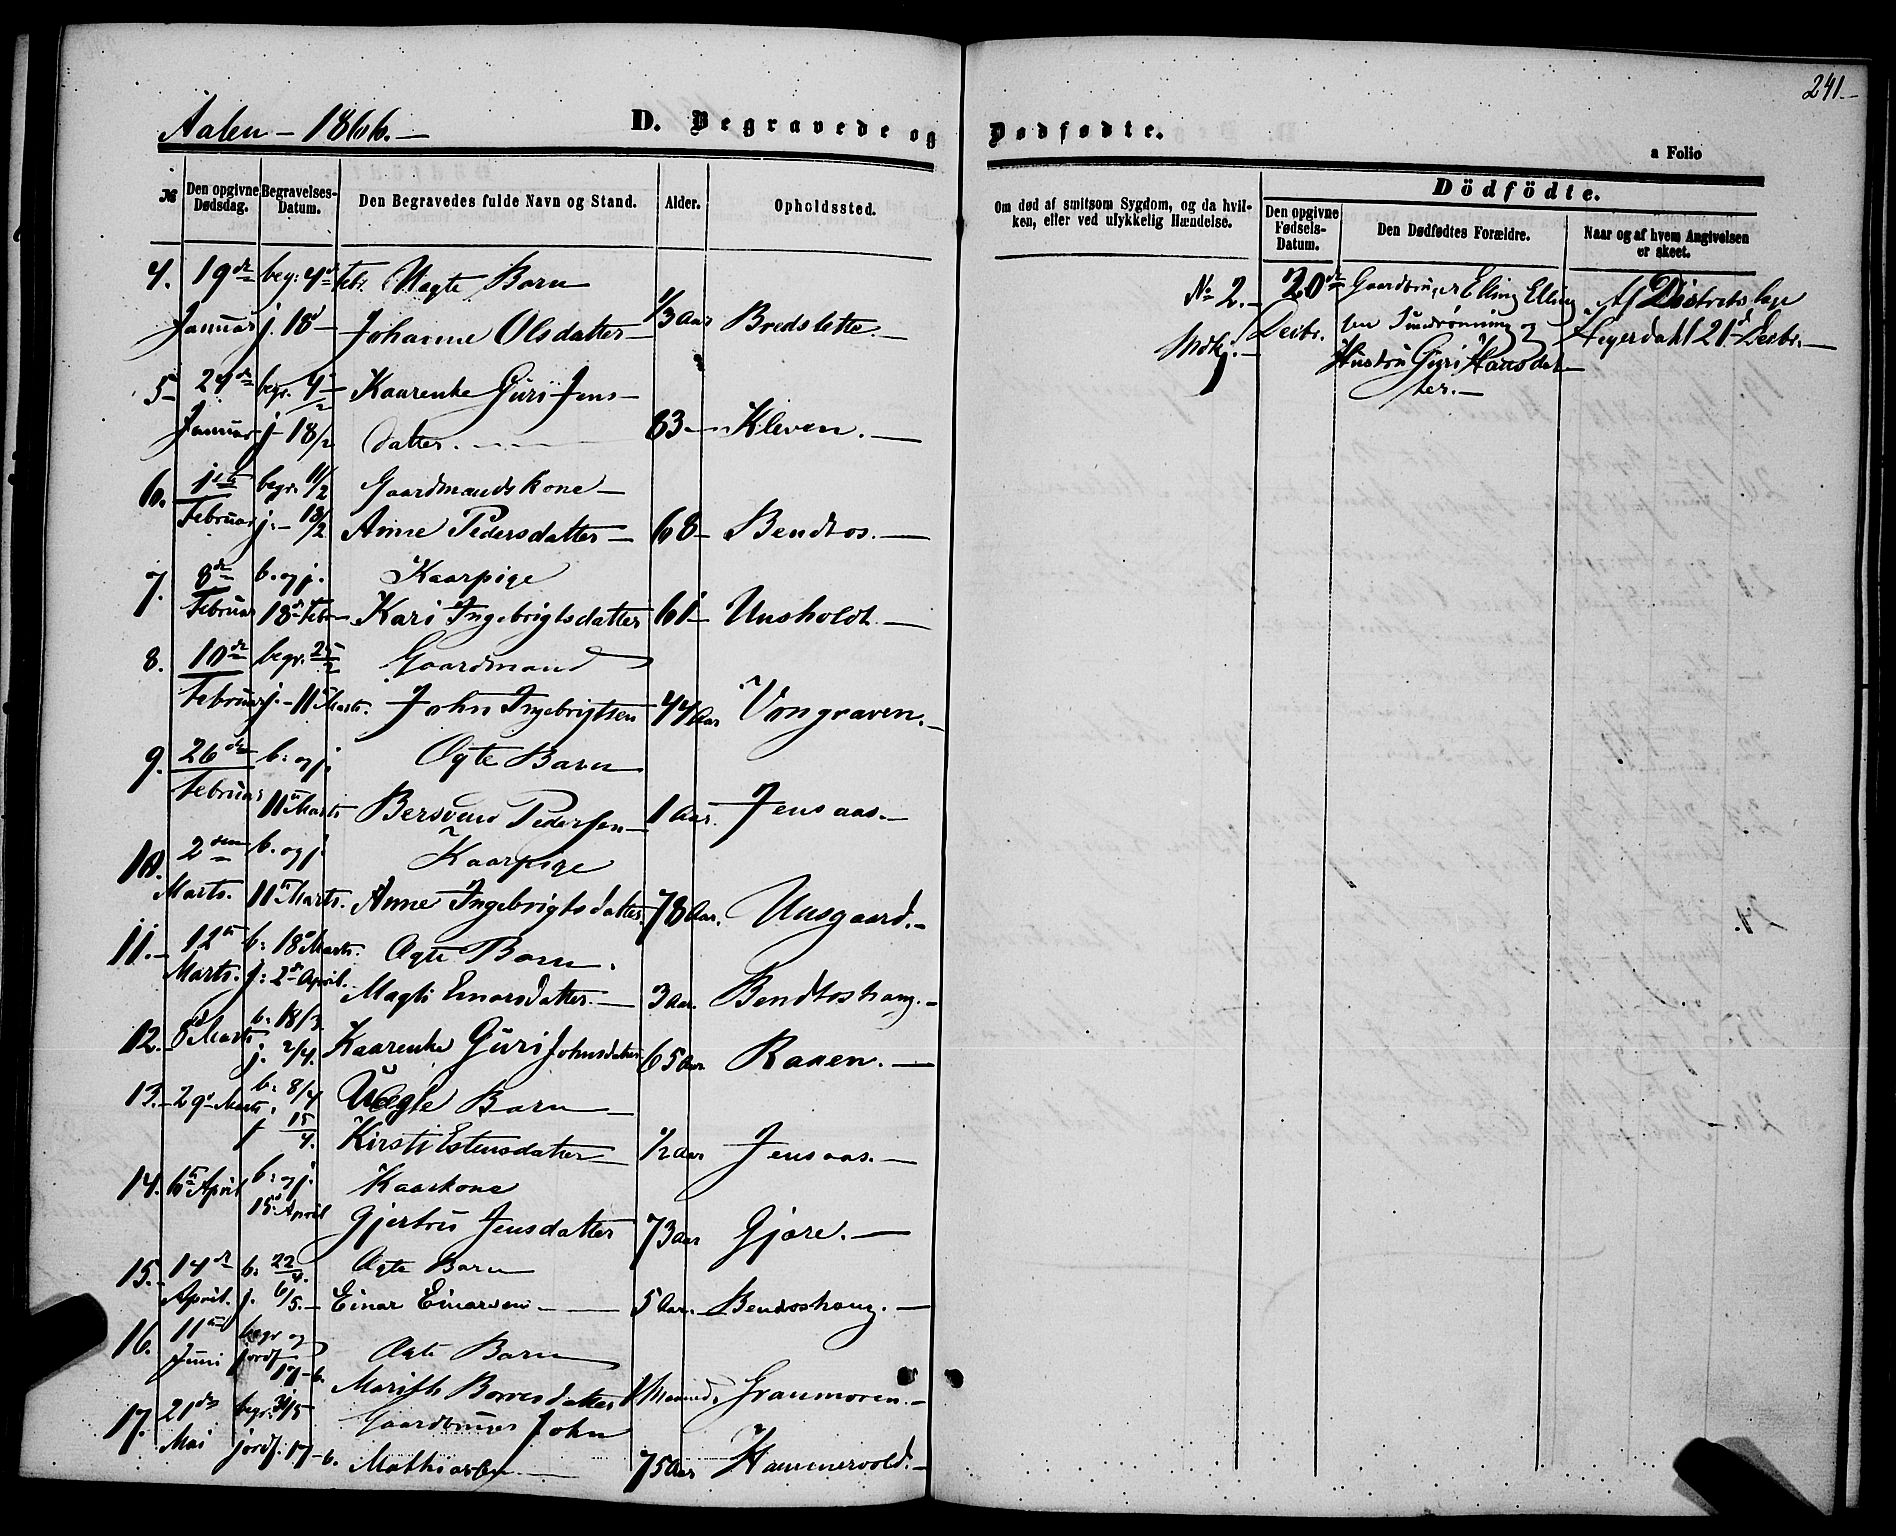 241.-
Aalen - 1866. -
D. Begravede og Dødfødte.
a Folio
№ Den opgivne Dødsdag. Begravelses-Datum. Den Begravedes fulde Navn og Stand. Alder. Opholdssted.
Om død af smitsom Sygdom, og da hvilken, eller ved ulykkelig Hændelse.
Dödfödte.
Den opgivne Fødsels-Datum. Den Dødfødtes Forældre. Naar og af hvem Angivelsen er skeet.
4. 19de beg: 4de Febr. Uægte Barn
Januar j. 18 Johanne Olsdatter - 1/3 Aar Bredslette. -
5 - 24de begr. 4/2 Kaarenke Guri Jens-
Januar j - 18/2 datter. - 83 - Kleven. -
6. 1ste begr. 11/2 Gaardmandskone -
Februar j. - 18/2 Anne Pedersdatter - 68 - Bendtos. -
7. 8de b. og j. Kaarpige
Februar 18de Febr Kari Ingebrigtsdatter 61 - Unsholdt. -
8. 10de begr. 25/2 Gaardmand
Februar j. - 11te Marts. John Ingebrigtsen 44 Aar Vongraven. -
9. 26de b: og j. Ægte Barn
Februar 11te Marts Bersvend Pedersen - 1 Aar. Jensaas. -
10. 2den b. og j. Kaarpige
Marts. 11te Marts. Anne Ingebrigtsdatter 78 Aar. Unsgaard. -
11. - 12te b: 18de Marts. Ægte Barn.
Marts. j: 2de April. Magli Einarsdatter. - 3 Aar. Bendtoshaug. -
12. 5te Marts b. 18/3
j. 2/4. Kaarenke Guri Johnsdatter 65 Aar Raaen. -
13. - 29de Marts. b. 8/4 Uægte Barn -
j 15/4. Kirsti Estensdatter - 1/2 Aar Jensaas. -
14. 6te April b: og j. Kaarkone
15de April Gjertrud Jensdatter 73 Aar Gjøre. -
15. - 14de b. 22/4. Ægte Barn
April. j. 6/5. - Einar Einarsen - 5 Aar. - Bendoshaug. -
16. 11te begr og Ægte Barn
Juni jordf. 17 - 6. Marith Børresdatter 1 Maaned. Graumoren. -
17. 21de begr. 31/5 Gaardbruger John
Mai jordf. 17 - 6. Mathiasen. - 75 Aar Hammervold. -
No 2. - 20de Gaardbruger Elling Elling- Af Distriktslæge
Mdkj. - Decbr. sen og Heyerdahl 21de Decbr. -
Hustru Guri Hansdat-
ter. -